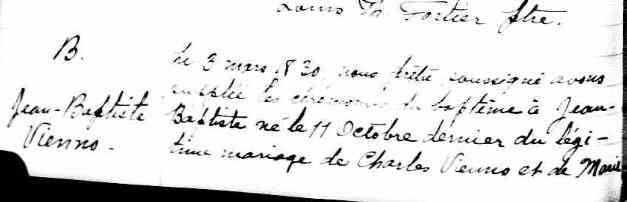 Louis Th. Fortier ptre.
B.
Jean-Baptiste
Vienno.
Le 3 mars 1830, nous prêtre soussigné avons
suppléé les cérémonies du baptême à Jean-
Baptiste né le 11 Octobre dernier du légi-
time mariage de Charles Vienno et de Marie